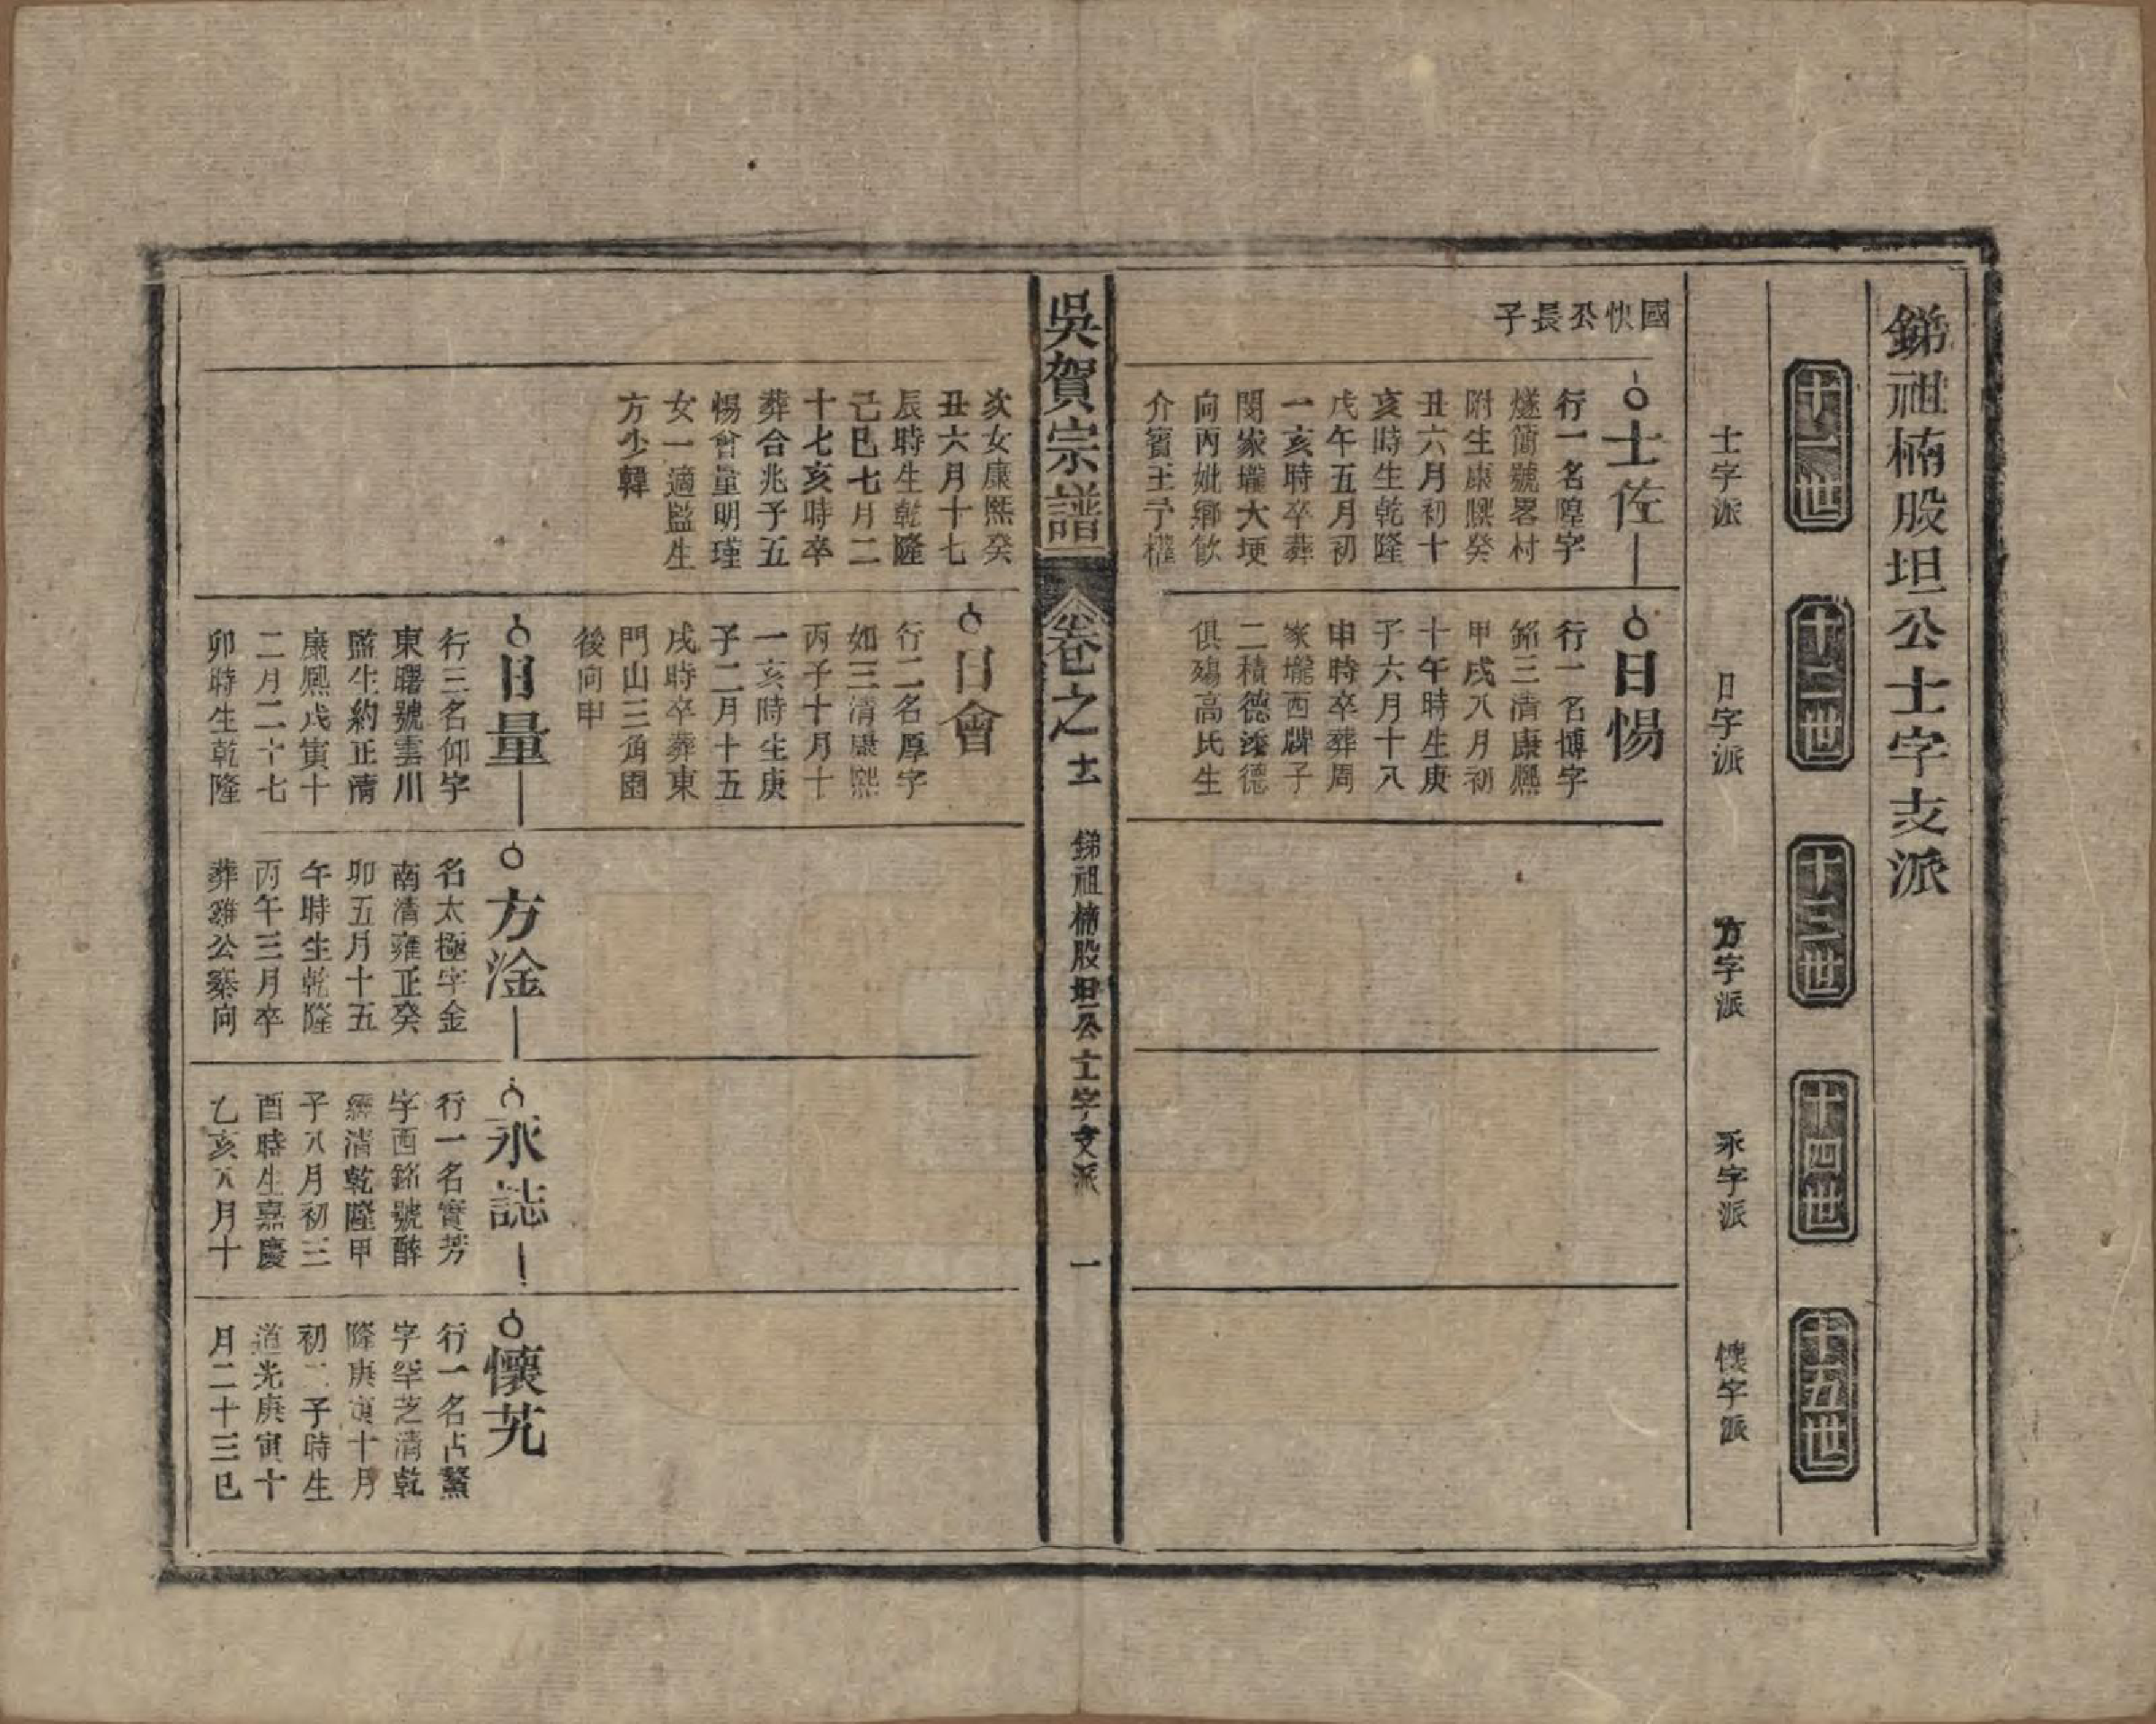 銻祖楠股坦公士字支派
十一世
十二世
十三世
十四世
十五世
士字派
日字派
方字派
永字派
懷字派
國快公長子
士佐
行一名隍字
燧簡號畧村
附生康熙癸
丑六月初十
亥時生乾隆
戊午五月初
一亥時卒葬
閔家壠大埂
向丙妣鄉飲
介賓王子權
日惕
行一名博字
銘三清康熙
甲戌八月初
十午時生庚
子六月十八
申時卒葬周
家壠西牌子
二積德添德
俱殤高氏生
吳賀宗譜
卷之十一
銻祖楠股坦公士字支派
一
次女康熙癸
丑六月十七
辰時生乾隆
己巳七月二
十七亥時卒
葬合兆子五
惕會量明瑾
女一適監生
方少韓
日會
行二名厚字
如三清康熙
丙子十月十
一亥時生庚
子二月十五
戌時卒葬東
門山三角園
後向甲
日量
行三名仰字
東曙號雲川
監生約正清
康熙戊寅十
二月二十七
卯時生乾隆
方淦
名太極字金
南清雍正癸
卯五月十五
午時生乾隆
丙午三月卒
葬雞公寨向
永誌
行一名實芳
字西銘號醉
經清乾隆甲
子八月初三
酉時生嘉慶
乙亥八月十
懷艽
行一名占鰲
字罕芝清乾
隆庚寅十月
初二子時生
道光庚寅十
月二十三巳